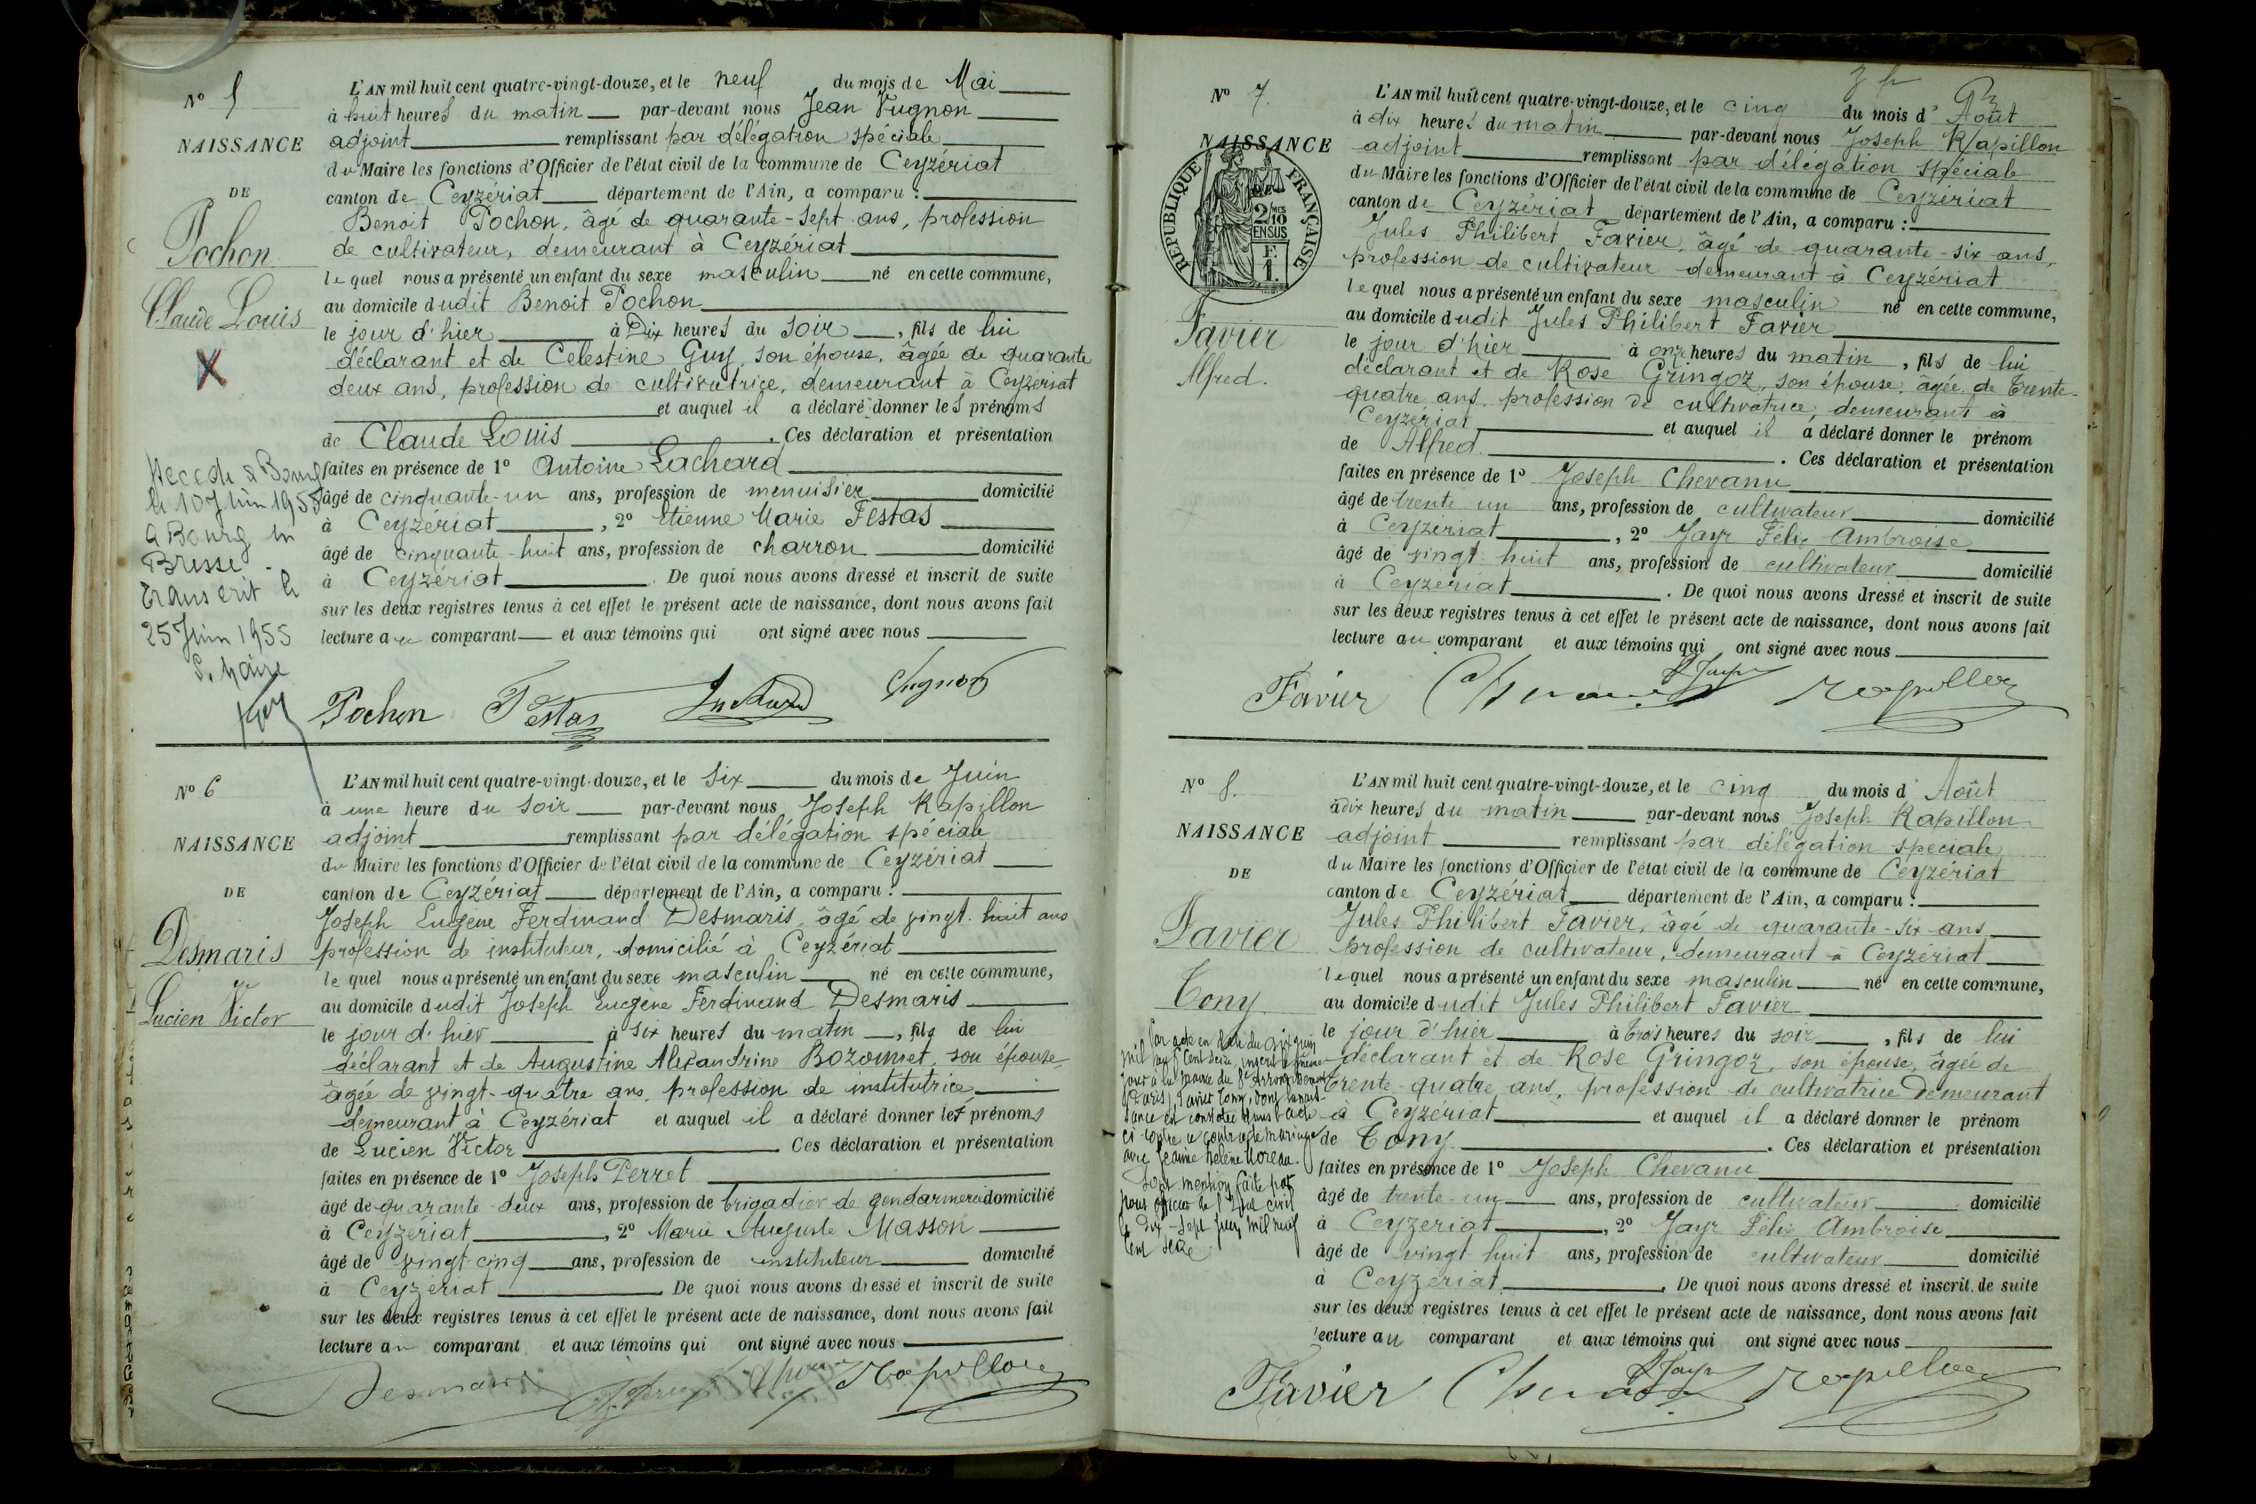 N° 5
NAISSANCE
DE
Pochon
Claude Louis
X
L'AN mil huit cent quatre-vingt-douze, et le neuf du mois de Mai
à huit heures du matin par-devant nous Jean Vugnon
adjoint remplissant par délégation spéciale
du Maire les fonctions d'Officier de l'état civil de la commune de Ceyzériat
canton de Ceyzériat département de l'Ain, a comparu :
Benoit Pochon, âgé de quarante-sept ans, profession
de cultivateur, demeurant à Ceyzériat
lequel nous a présenté un enfant du sexe masculin né en cette commune,
au domicile dudit Benoit Pochon
le jour d'hier à Dix heures du soir, fils de lui
déclarant et de Celestine Guy, son épouse, âgée de quarante
deux ans, profession de cultivatrice, demeurant à Ceyzériat
et auquel il a déclaré donner les prénoms
de Claude Louis. Ces déclaration et présentation
faites en présence de 1° Antoine Lacheard
âgé de cinquante-un ans, profession de menuisier domicilié
à Ceyzériat, 2° Etienne Marie Festas
âgé de cinquante-huit ans, profession de charron domicilié
à Ceyzériat. De quoi nous avons dressé et inscrit de suite
sur les deux registres tenus à cet effet le présent acte de naissance, dont nous avons fait
lecture au comparant et aux témoins qui ont signé avec nous
Décédé à Bourg
le 10 Juin 1955
à Bourg en
Bresse.
Transcrit le
25 Juin 1955
Pochon Festas Vugnon
N° 6
NAISSANCE
DE
Desmaris
Lucien Victor
L'AN mil huit cent quatre-vingt-douze, et le Six du mois de Juin
à une heure du soir par-devant nous Joseph Rapillon
adjoint remplissant par délégation spéciale
du Maire les fonctions d'Officier de l'état civil de la commune de Ceyzériat
canton de Ceyzériat département de l'Ain, a comparu :
Joseph Eugene Ferdinand Desmaris, âgé de vingt-huit ans
profession de instituteur, domicilié à Ceyzériat
lequel nous a présenté un enfant du sexe masculin né en cette commune,
au domicile dudit Joseph Eugène Ferdinand Desmaris
le jour d'hier à six heures du matin, fils de lui
déclarant et de Augustine Alexandrine Bozonnet, son épouse
âgée de vingt-quatre ans, profession de institutrice
demeurant à Ceyzériat et auquel il a déclaré donner les prénoms
de Lucien Victor Ces déclaration et présentation
faites en présence de 1° Joseph Perret
âgé de quarante-deux ans, profession de brigadier de gendarmerie domicilié
à Ceyzériat, 2° Marie Auguste Masson
âgé de vingt-cinq ans, profession de instituteur domicilié
à Ceyzériat. De quoi nous avons dressé et inscrit de suite
sur les deux registres tenus à cet effet le présent acte de naissance, dont nous avons fait
lecture au comparant et aux témoins qui ont signé avec nous
Desmaris Rapillon
N° 7.
NAISSANCE
RÉPUBLIQUE FRANÇAISE
2/10
EN SUS
F.
1
Favier
Alfred.
L'AN mil huit cent quatre-vingt-douze, et le cinq du mois d'Août
à dix heures du matin par-devant nous Joseph Rapillon
adjoint remplissant par délégation spéciale
du Maire les fonctions d'Officier de l'état civil de la commune de Ceyzériat
canton de Ceyzériat département de l'Ain, a comparu :
Jules Philibert Favier, âgé de quarante-six ans,
profession de cultivateur demeurant à Ceyzériat
lequel nous a présenté un enfant du sexe masculin né en cette commune,
au domicile dudit Jules Philibert Favier
le jour d'hier à onze heures du matin, fils de lui
déclarant et de Rose Gringoz, son épouse, âgée de trente-
quatre ans, profession de cultivatrice, demeurant à
Ceyzériat et auquel il a déclaré donner le prénom
de Alfred. Ces déclaration et présentation
faites en présence de 1° Joseph Chevanu
âgé de trente un ans, profession de cultivateur domicilié
à Ceyzériat, 2° Jayr Félix Ambroise
âgé de vingt-huit ans, profession de cultivateur domicilié
à Ceyzériat. De quoi nous avons dressé et inscrit de suite
sur les deux registres tenus à cet effet le présent acte de naissance, dont nous avons fait
lecture au comparant et aux témoins qui ont signé avec nous
Favier Jayr Rapillon
N° 8.
NAISSANCE
DE
Favier
Tony.
L'AN mil huit cent quatre-vingt-douze, et le cinq du mois d'Août
à dix heures du matin par-devant nous Joseph Rapillon
adjoint remplissant par délégation spéciale
du Maire les fonctions d'Officier de l'état civil de la commune de Ceyzériat
canton de Ceyzériat département de l'Ain, a comparu :
Jules Philibert Favier, âgé de quarante-six ans
profession de cultivateur, demeurant à Ceyzériat
lequel nous a présenté un enfant du sexe masculin né en cette commune,
au domicile dudit Jules Philibert Favier
le jour d'hier à trois heures du soir, fils de lui
déclarant et de Rose Gringoz, son épouse, âgée de
trente-quatre ans, profession de cultivatrice demeurant
à Ceyzériat et auquel il a déclaré donner le prénom
de Tony. Ces déclaration et présentation
faites en présence de 1° Joseph Chevanu
âgé de trente-un ans, profession de cultivateur domicilié
à Ceyzériat, 2° Jayr Félix Ambroise
âgé de vingt-huit ans, profession de cultivateur domicilié
à Ceyzériat. De quoi nous avons dressé et inscrit de suite
sur les deux registres tenus à cet effet le présent acte de naissance, dont nous avons fait
lecture au comparant et aux témoins qui ont signé avec nous
Par acte en date du dix juin
mil neuf cent seize, inscrit le même
jour à la mairie du 8e Arrondissement
Paris, Favier Tony, dont la nais-
sance est constatée dans l'acte
ci contre a contracté mariage
avec Jeanne Hélène Moreau.
Dont mention faite par
nous officier de l'état civil
le dix-sept juin mil neuf
cent seize
Favier Jayr Rapillon